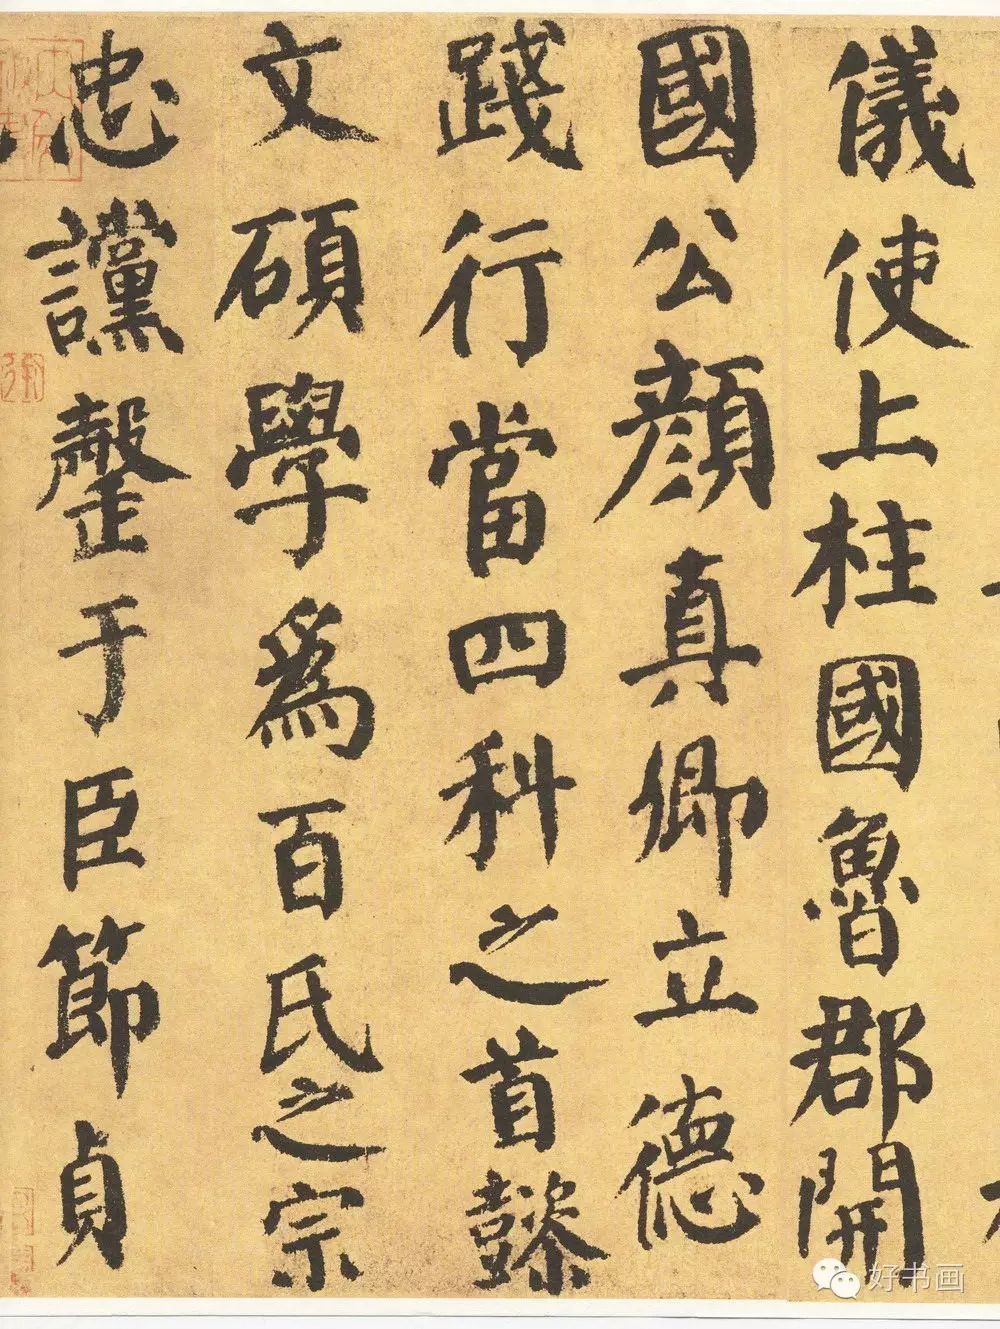 儀使上柱國魯郡開
國公顏真卿立德
踐行當四科之首懿
文碩學爲百氏之宗
忠讜罄于臣節貞
好书画